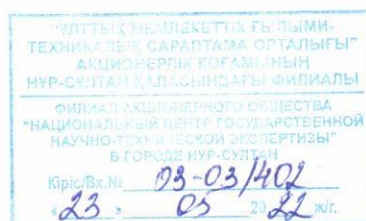 "ҰЛТТЫҚ МЕМЛЕКЕТТІК ҒЫЛЫМИ-
ТЕХНИКАЛЫҚ САРАПТАМА ОРТАЛЫҒЫ"
АКЦИОНЕРЛІК ҚОҒАМЫНЫҢ
НҰР-СҰЛТАН ҚАЛАСЫНДАҒЫ ФИЛИАЛЫ
ФИЛИАЛ АКЦИОНЕРНОГО ОБЩЕСТВА
"НАЦИОНАЛЬНЫЙ ЦЕНТР ГОСУДАРСТВЕННОЙ
НАУЧНО-ТЕХНИЧЕСКОЙ ЭКСПЕРТИЗЫ"
В ГОРОДЕ НУР-СУЛТАН
Кіріс/Вх.№ 03-03/402
"23" 05 2022 ж/г.